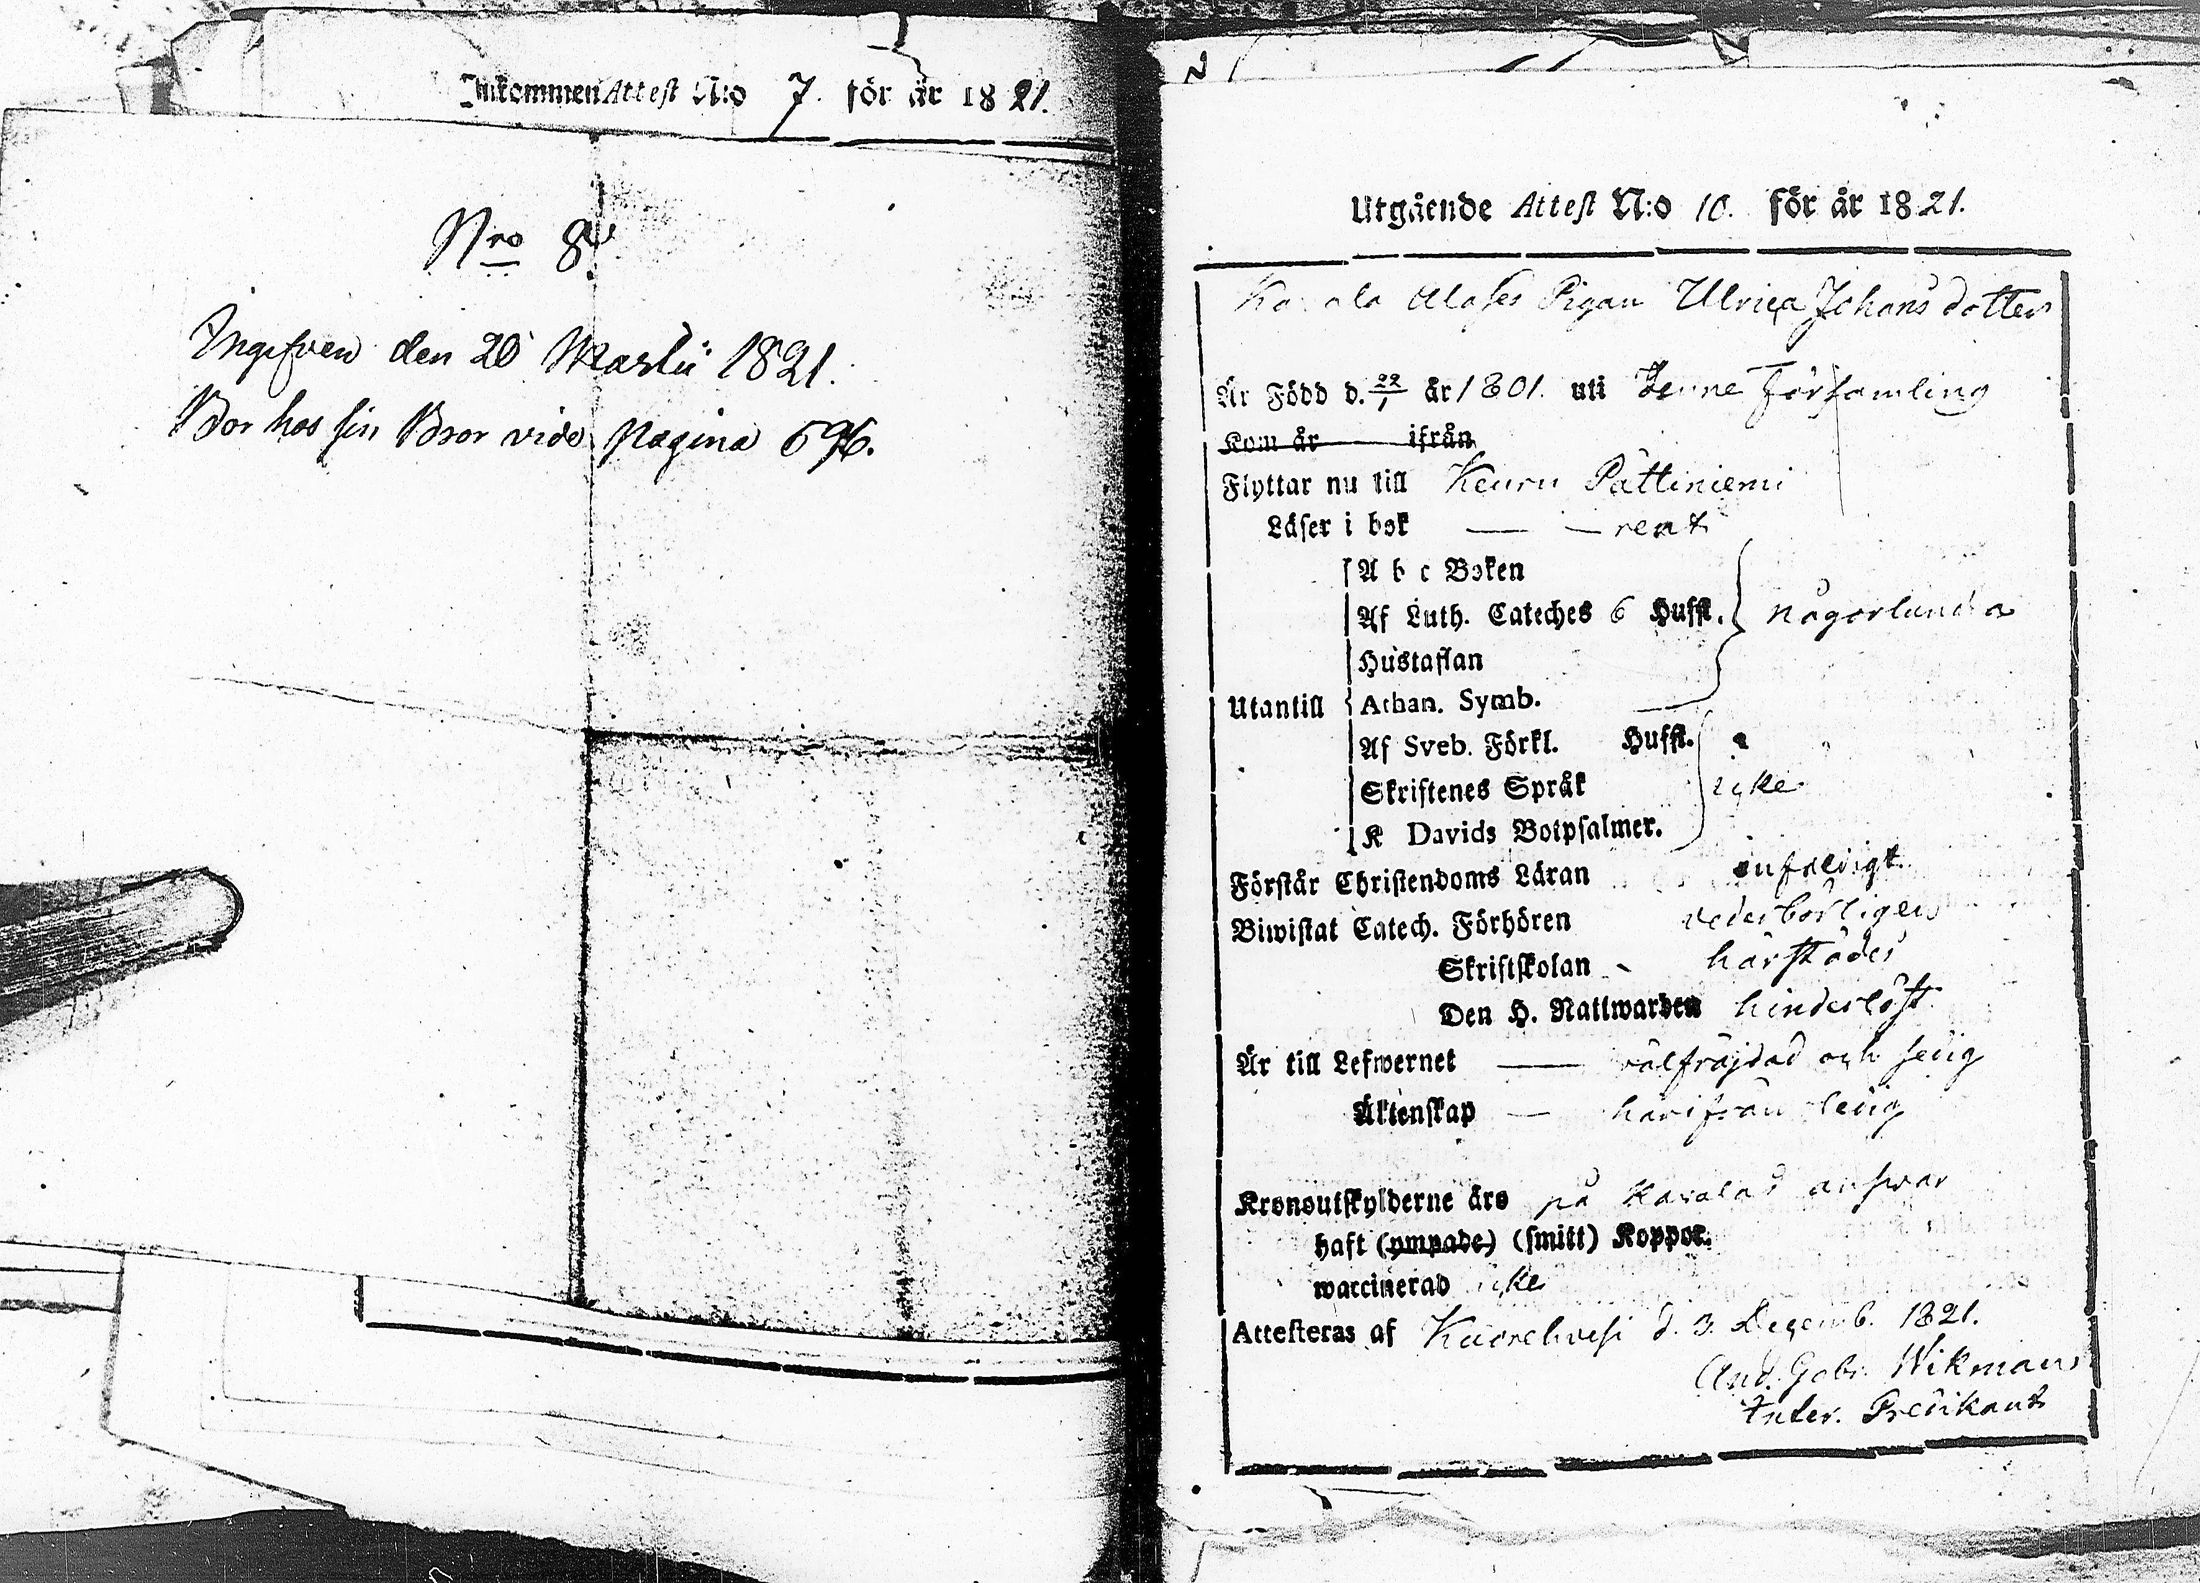 Inkommen Attest N:o 7. för år 1821.
Nro 8
Ingifven den 20 Martii 1821.
Bor hos sin Bror vide Pagina 696.
Utgående Attest N:o 10. för år 1821.
Pigan Ulrica Johansdotter
Är Född d. 22/1 år 1801. uti Denne Församling
Kom år ifrån
Flyttar nu till Keuru Pättiniemi
Läser i bok — — rent
A b c Boken
Af Luth. Cateches 6 Hufst. någorlunda
Hustaflan
Utantill Athan. Symb.
Af Sveb. Förkl. Hufst.
Skriftenes Språk icke
K Davids Botpsalmer.
Förstår Christendoms Läran enfaldigt
Biwistat Catech. Förhören vederbörligen
Skriftskolan härstädes
Den H. Nattwarden hinderlöst
Är till Lefwernet — välfräjdad och sedig
Äktenskap — härifrån ledig
Kronoutskylderne äro på answar
haft (ympade) (smitt) Koppor.
waccinerad icke
Attesteras af Kuorehvesi d. 3. Decemb. 1821.
And. Gabr. Wikman
Inter. Predikant